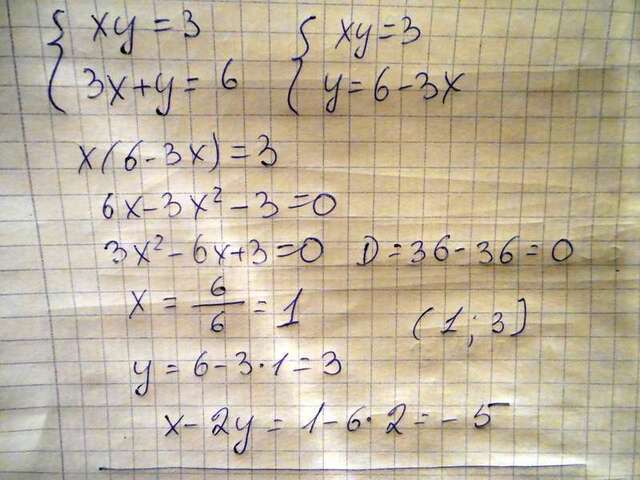 { xy = 3    { xy = 3
{ 3x + y = 6    { y = 6 - 3x
x(6 - 3x) = 3
6x - 3x² - 3 = 0
3x² - 6x + 3 = 0    D = 36 - 36 = 0
x = 6/6 = 1    (1; 3]
y = 6 - 3 · 1 = 3
x - 2y = 1 - 6 · 2 = - 5